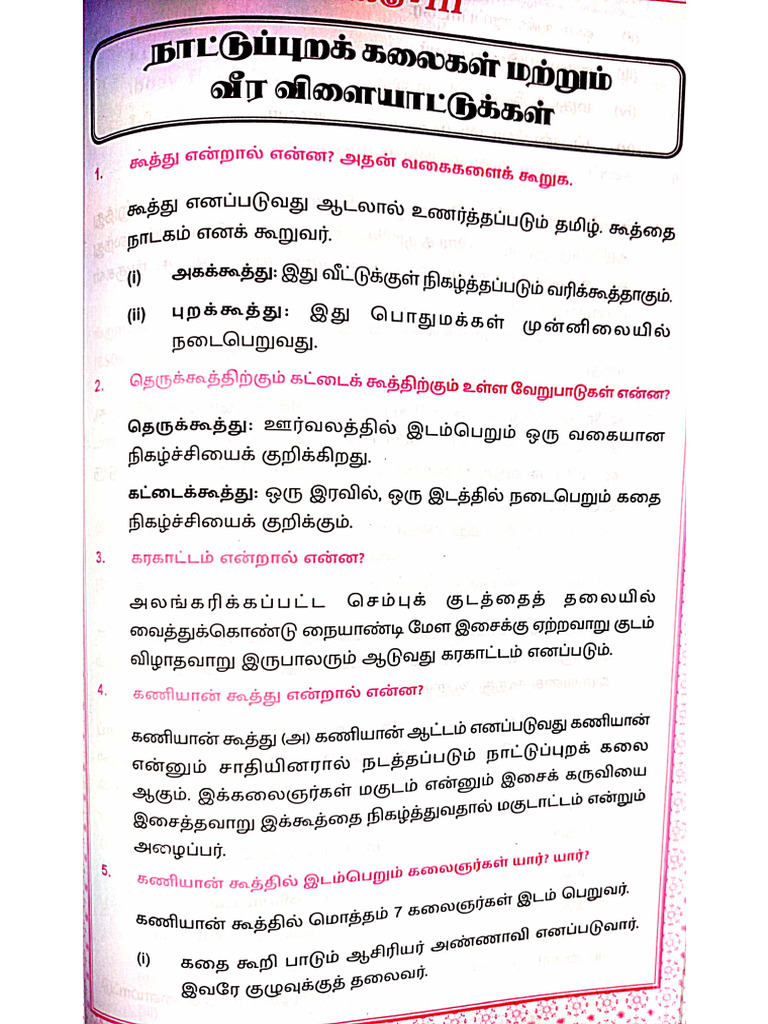 நாட்டுப்புறக் கலைகள் மற்றும்
வீர விளையாட்டுக்கள்
1. கூத்து என்றால் என்ன? அதன் வகைகளைக் கூறுக.
கூத்து எனப்படுவது ஆடலால் உணர்த்தப்படும் தமிழ். கூத்தை
நாடகம் எனக் கூறுவர்.
(i) அகக்கூத்து: இது வீட்டுக்குள் நிகழ்த்தப்படும் வரிக்கூத்தாகும்.
(ii) புறக்கூத்து: இது பொதுமக்கள் முன்னிலையில்
நடைபெறுவது.
2. தெருக்கூத்திற்கும் கட்டைக் கூத்திற்கும் உள்ள வேறுபாடுகள் என்ன?
தெருக்கூத்து: ஊர்வலத்தில் இடம்பெறும் ஒரு வகையான
நிகழ்ச்சியைக் குறிக்கிறது.
கட்டைக்கூத்து: ஒரு இரவில், ஒரு இடத்தில் நடைபெறும் கதை
நிகழ்ச்சியைக் குறிக்கும்.
3. கரகாட்டம் என்றால் என்ன?
அலங்கரிக்கப்பட்ட செம்புக் குடத்தைத் தலையில்
வைத்துக்கொண்டு நையாண்டி மேள இசைக்கு ஏற்றவாறு குடம்
விழாதவாறு இருபாலரும் ஆடுவது கரகாட்டம் எனப்படும்.
4. கணியான் கூத்து என்றால் என்ன?
கணியான் கூத்து (அ) கணியான் ஆட்டம் எனப்படுவது கணியான்
என்னும் சாதியினரால் நடத்தப்படும் நாட்டுப்புறக் கலை
ஆகும். இக்கலைஞர்கள் மகுடம் என்னும் இசைக் கருவியை
இசைத்தவாறு இக்கூத்தை நிகழ்த்துவதால் மகுடாட்டம் என்றும்
அழைப்பர்.
5. கணியான் கூத்தில் இடம்பெறும் கலைஞர்கள் யார்? யார்?
கணியான் கூத்தில் மொத்தம் 7 கலைஞர்கள் இடம் பெறுவர்.
(i) கதை கூறி பாடும் ஆசிரியர் அண்ணாவி எனப்படுவார்.
இவரே குழுவுக்குத் தலைவர்.